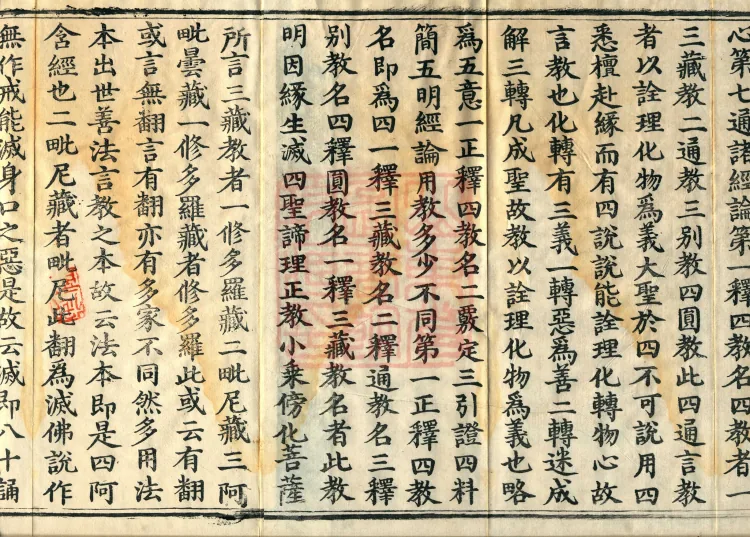 心第七遍諸經論第一釋四教名四教者一
三藏教二通教三别教四圓教此四通言教
者以詮理化物爲義大聖於四不可說用四
悉檀赴緣而有四說說能詮理化轉物心故
言教也化轉有三義一轉惡爲善二轉迷成
解三轉凡成聖故教以詮理化物爲義也略
爲五意一正釋四教名二覈定三引證四料
簡五明經論用教多少不同第一正釋四教
名即爲四一釋三藏教名二釋通教名三釋
别教名四釋圓教名一釋三藏教名者此教
明因緣生滅四聖諦理正教小乗傍化菩薩
所言三藏教者一修多羅藏二毗尼藏三阿
毗曇藏一修多羅藏者修多羅此或云有翻
或言無翻言有翻亦有多家不同然多用法
本出世善法言教之本故云法本即是四阿
含經也二毗尼藏者毗尼此翻爲滅佛說作
無作戒能滅身口之惡是故云滅即八十誦